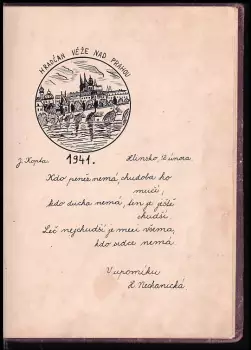 HRADČAN VĚŽE NAD PRAHOU
J. Kopta 1941. Hlinsko, 12. února.
Kdo peněz nemá, chudoba ho
mučí,
kdo ducha nemá, ten je ještě
chudší.
Leč nejchudší je mezi všema,
kdo srdce nemá
V upomínku
H. Nechanická